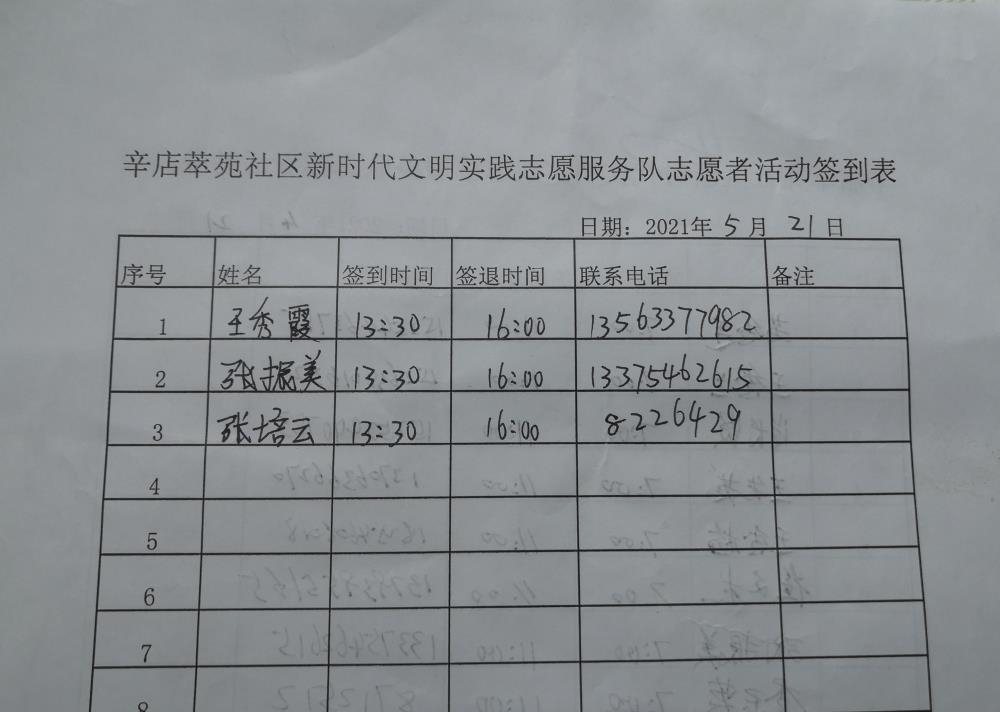 辛店萃苑社区新时代文明实践志愿服务队志愿者活动签到表
日期：2021年 5 月 21 日
序号 姓名 签到时间 签退时间 联系电话 备注
1 王秀霞 13:30 16:00 13563377982
2 张振美 13:30 16:00 13375462615
3 张培云 13:30 16:00 8226429
4
5
6
7
8